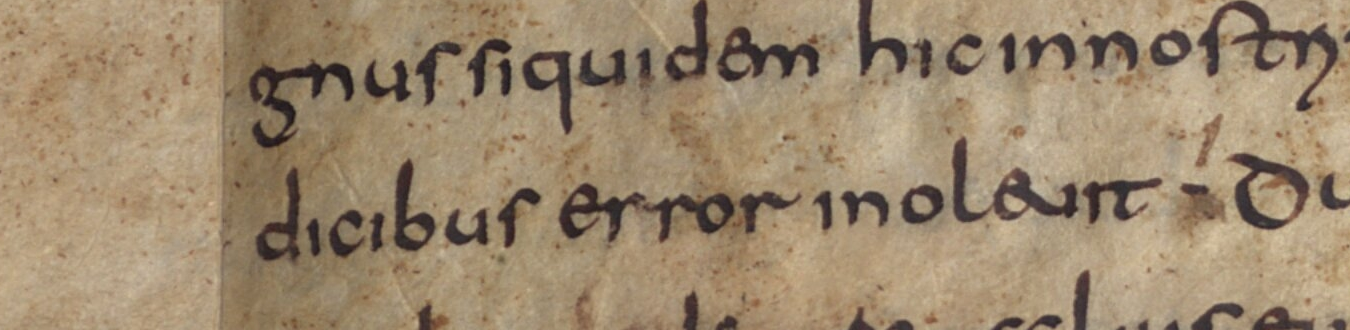 gnus siquidem hic in nostri
dicibus error inoleuit · Du